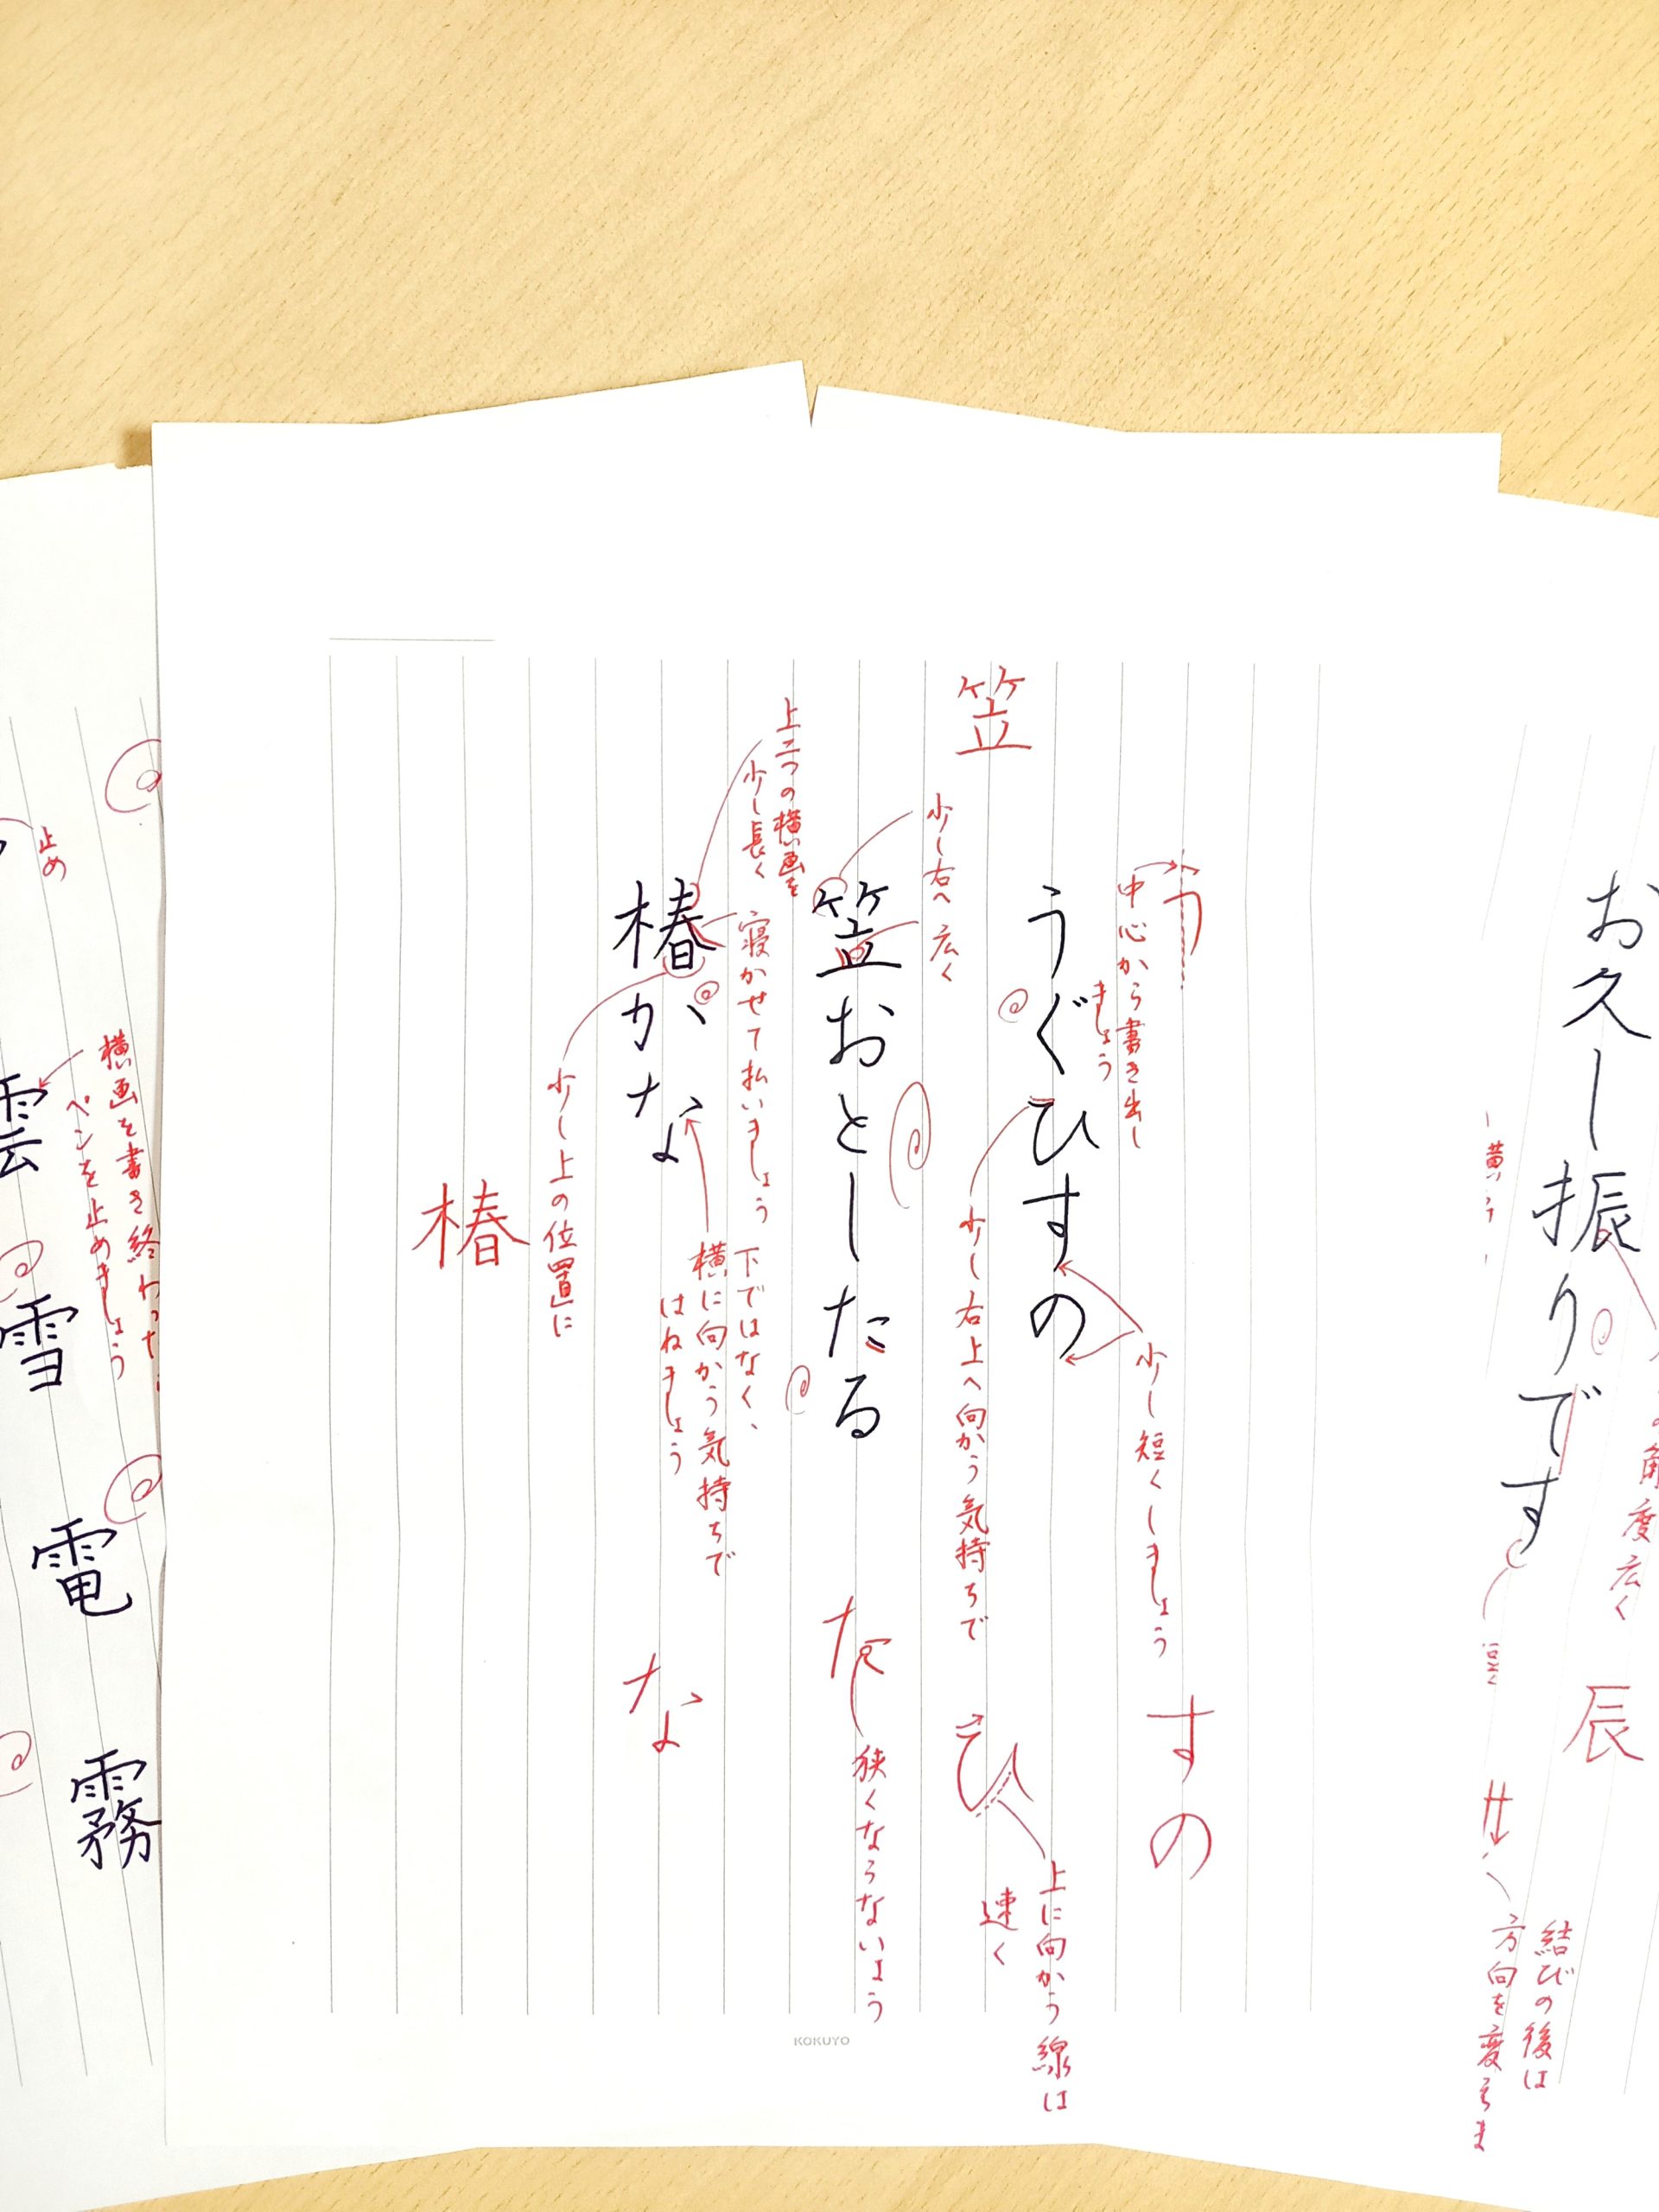 お久し振りです
角度広く
辰
結びの後は
方向を変えま
う
中心から書き出し
ましょう
少し短くしましょう
すの
うぐひすの
少し右上へ向かう気持ちで
ひ
上に向かう線は
速く
笠
少し右へ
広く
笠おとしたる
た
狭くならないよう
上二つの横画を
少し長く
寝かせて払いましょう
下ではなく、
横に向かう気持ちで
はねましょう
椿がな
な
少し上の位置に
椿
KOKUYO
横画を書き終わった
ペンを止めましょう
止め
雲
雪
電
霧